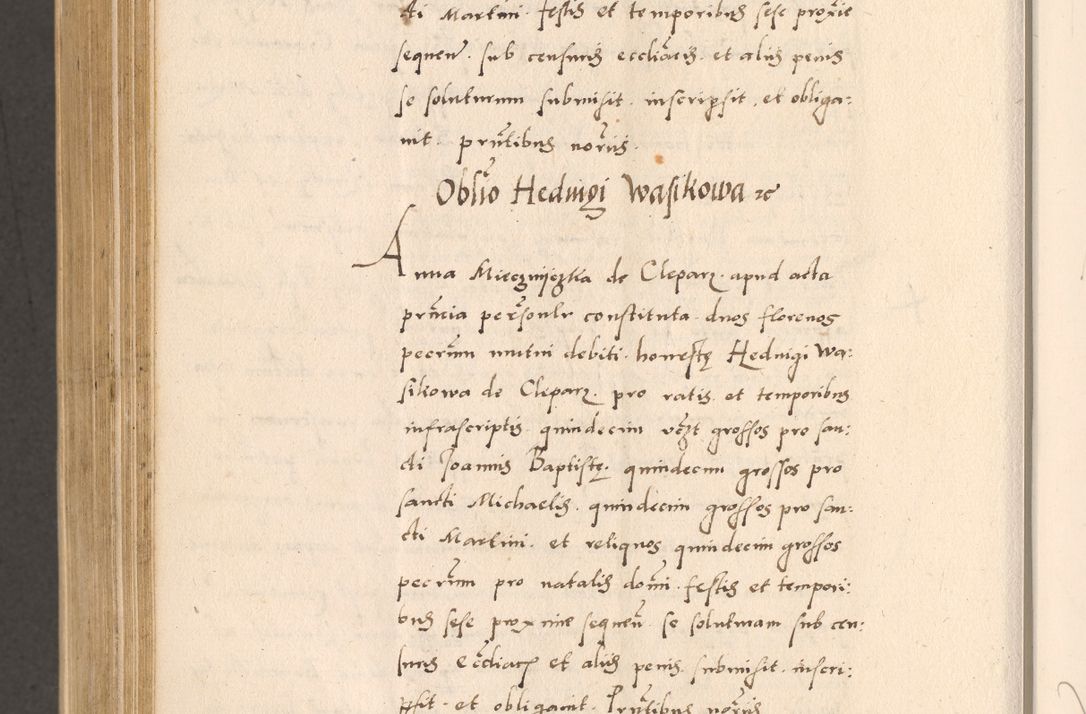 cti Martini. festis et temporibus sese proxie
sequen̄. sub censuris eccliacis. et aliis penis
se soluturum submisit. inscripsit. et obliga:
uit. prn̄tibus noriis.
Oblio Heduigi Wasikowa etc
Anna Miecznijczka de Clepar. apud acta
prn̄cia personalr constituta. duos florenos
pecrum mutui debiti. honestę Heduigi Wa:
sikowa de Clepar. pro ratis. et temporibus
infrascriptis. quindecim vczt grossos pro san:
cti Joannis Baptistę. quindecim grossos pro
sancti Michaelis. quindecim grossos pro san:
cti Martini. et reliquos quindecim grossos
pecrum pro natalis domi. festis et tempori:
bus sese proxime sequen̄. se soluturam sub cen:
suris eccliacis et aliis penis. submisit. inscri:
psit. et obligauit. Prn̄tibus noriis